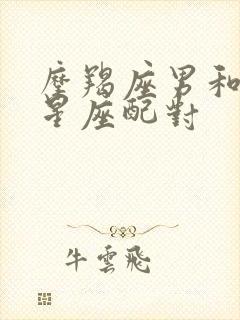 摩羯座男和
星座配對
牛雲飛